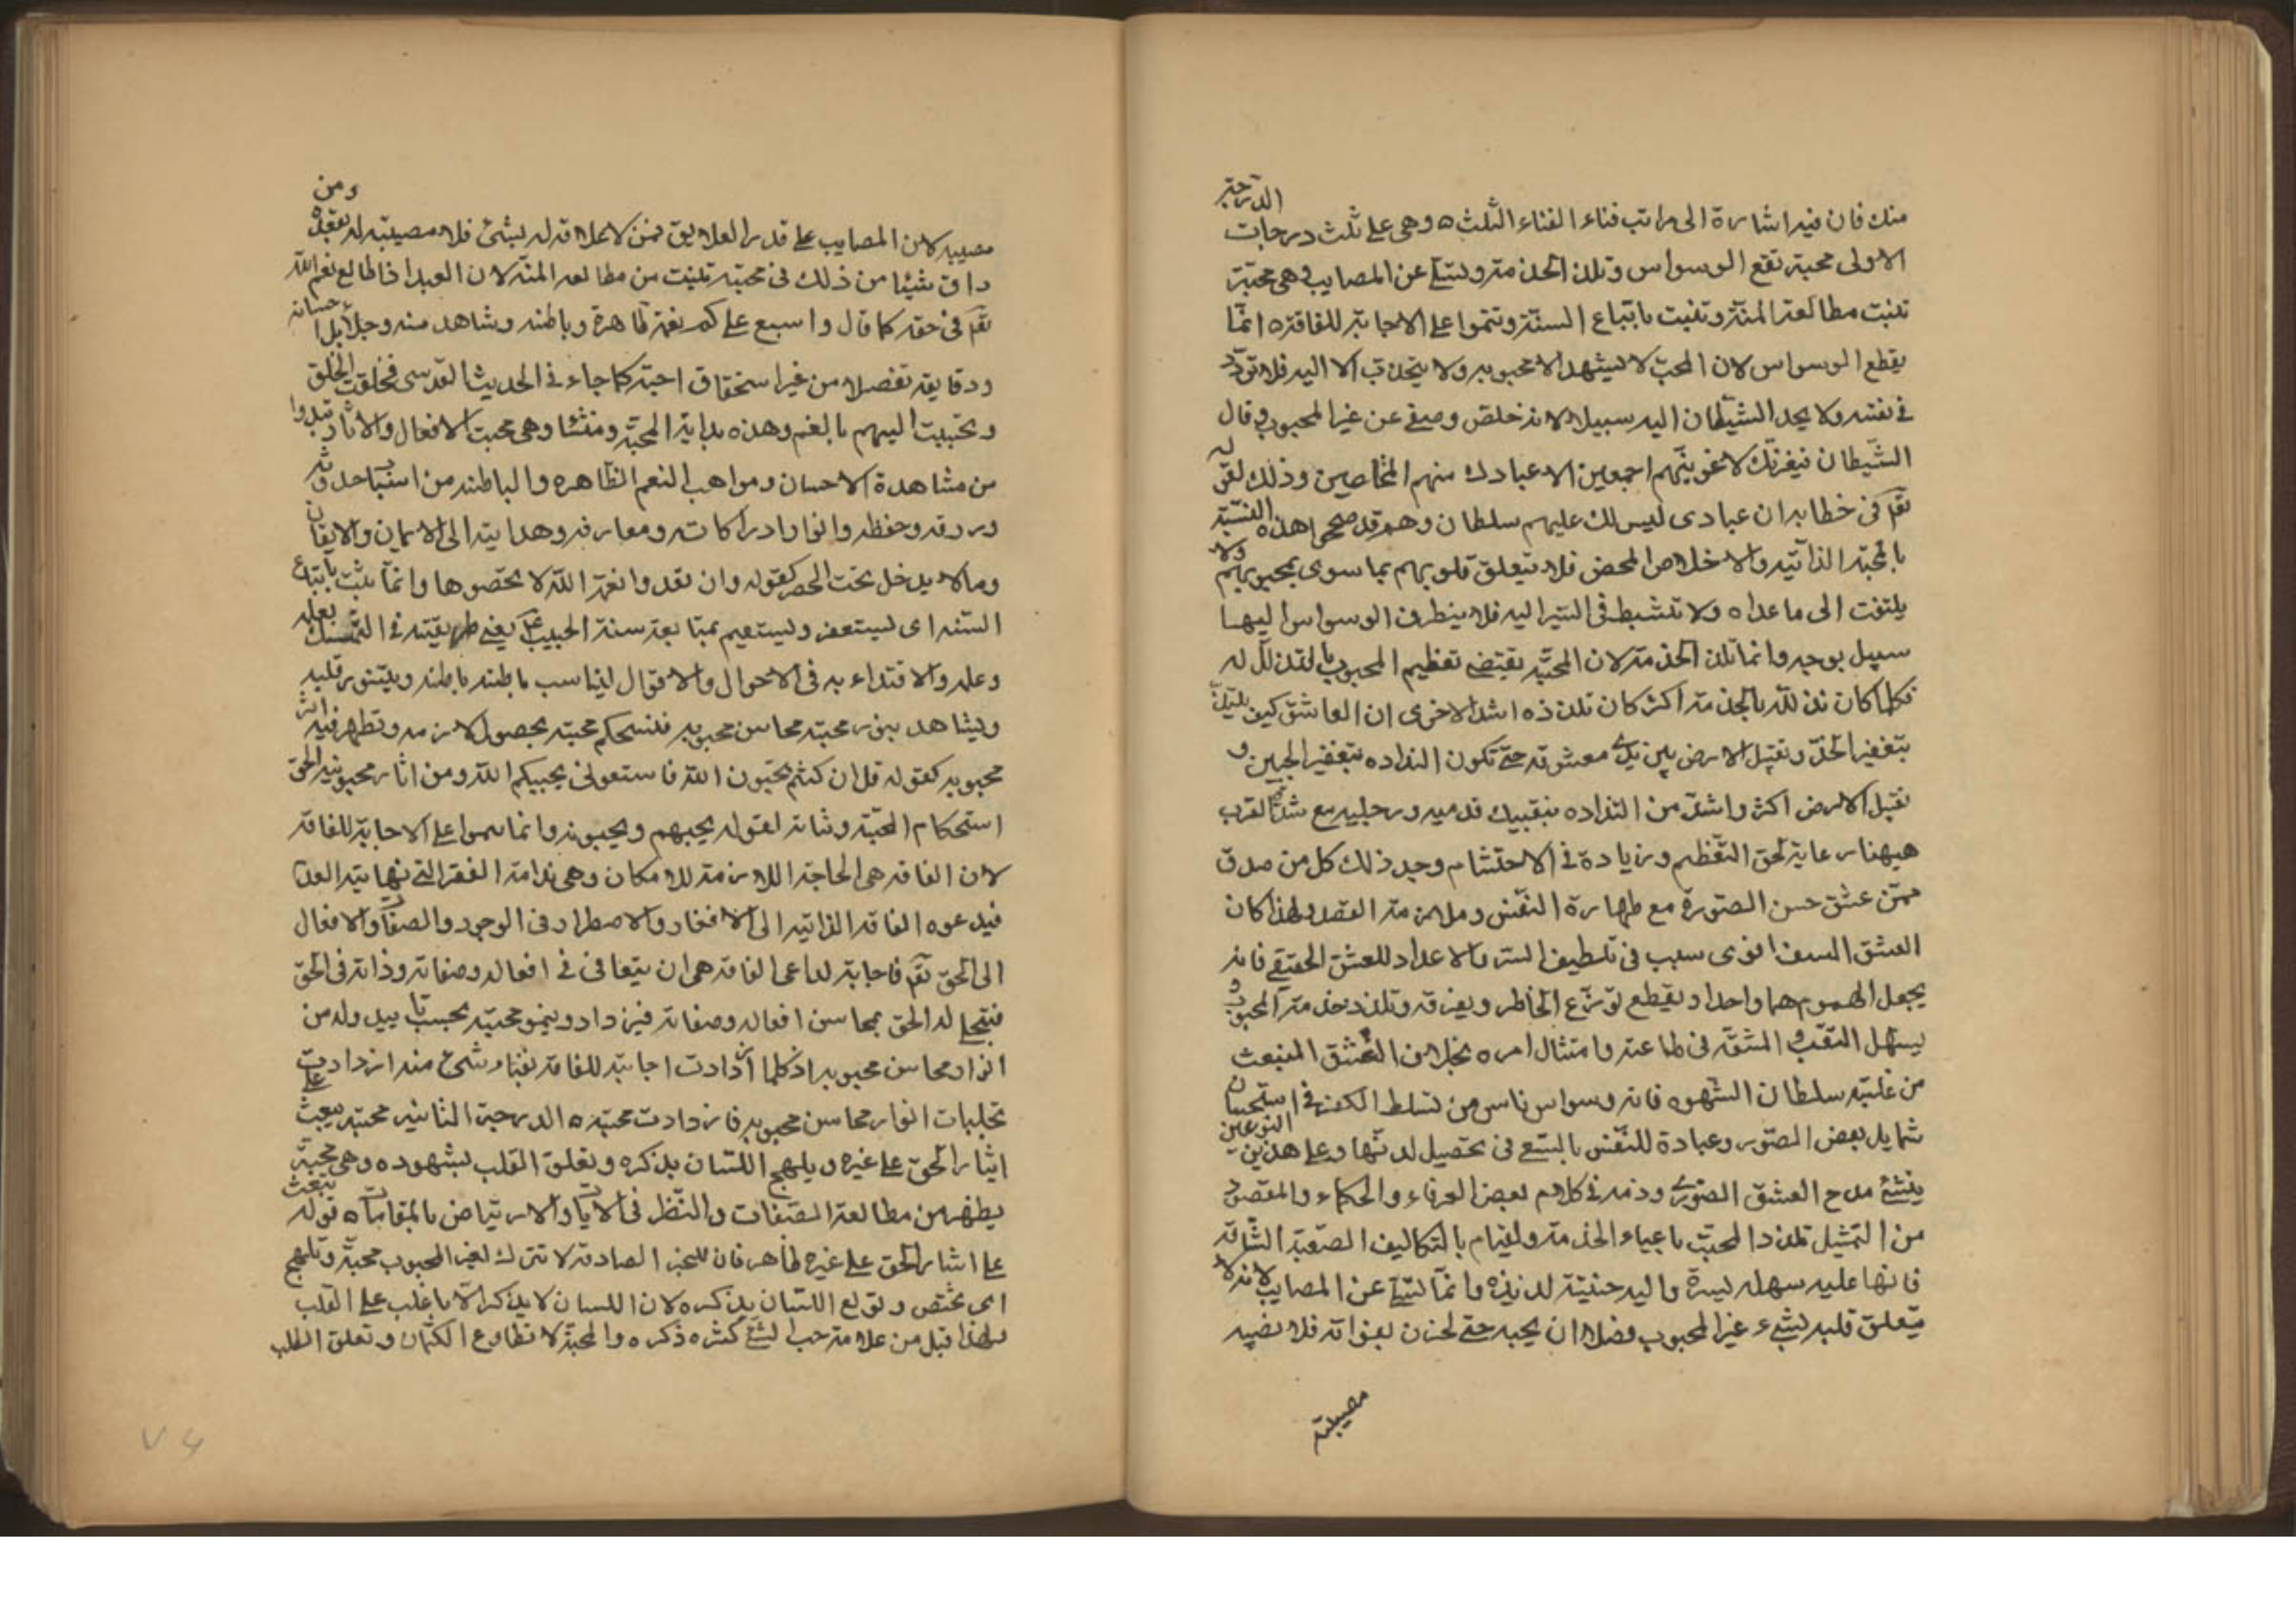 منك فان فيه اشارة الى مراتب فناء الفناء الثلث ه وهى على ثلث درجات الدرجة
الاولى محبة تقع الوسواس وتلذ الخدمة وتسلى عن المصايب وهى محبة
تنبت مطالعة المنة وتثبت باتباع السنة وتنموا على الاجابة للفاقة ه انما
يقطع الوسواس لان المحب لا يشهد الا محبوبه ولا ينجذب الا اليه فلا تردد
فى نفسه ولا يجد الشيطان اليه سبيلا لانه خلص وصفى عن غير المحبوب وقال
الشيطان فبعزتك لاغوينهم اجمعين الا عبادك منهم المخلصين وذلك لقوله
تقم فى خطابه ان عبادى ليس لك عليهم سلطان وهم قد صححوا هذه النسبة
بالمحبة الذاتيه والاخلاص المحض فلا تتعلق قلوبهم بما سوى محبوبهم ولا
يلتفت الى ما عداه ولا تنشبط فى السير اليه فلا ينطرق الوسواس اليها
سبيل بوجه وانما تلذ الخدمة لان المحبة يقتضى تعظيم المحبوب بالتذلل له
فكلما كان تذلله بالخدمة اكثر كان تلذذه اشد الا ترى ان العاشق كيف يتذلل
بتعفير الخد وتقبيل الارض بين يدى معشوقه حتى تكون التذاده بتعفير الجبين و
تقبيل الارض اكثر واشد من التذاده بتقبيل قدميه ورجليه مع شدة القرب
هيهنا رعاية لحق التعظيم وزيادة فى الاحتشام وجد ذلك كل من صدق
ممن عشق حسن الصورة مع طهارة النفس وملازمة القصد ولهذا كان
العشق النفسانى سبب فى تلطيف السر والاعداد للعشق الحقيقى فانه
يجعل الهموم هما واحدا ويقطع توزع الخاطر ويفرقه وتلذذ خدمة المحبوب و
يسهل التعب والمشقة فى طاعته وامتثال امره بخلاف العشق المنبعث
من غلبة سلطان الشهوه فانه وسواس ناس من تسلط الكفر فى استحسان
شمايل بعض الصور وعبادة للنفس بالسعى فى تحصيل لذتها وعلى هذين النوعين
ينشئ مدح العشق الصورى وذمه فى كلام بعض العرفاء والحكماء والمقصود
من التمثيل تلذذ المحبت باعباء الخدمة والقيام بالتكاليف الصعبة الشاقة
فانها عليه سهلة يسيرة واليه حنيئة لذيذة وانما تسلى عن المصايب لانه لا
يتعلق قلبه بشىء غير المحبوب فضلا ان يحبه حتى لحزن بفواته فلا تصيبه
مصيبته
مصيبه لان المصايب على قدر العلايق فمن لا علاقة له بشئ فلا مصيبة له بفقده ومن
ذاق شيئا من ذلك فى محبته تنبت من مطالعه المنه لان العبد اذا طالع نعم الله
تقم فى حقه كما قال واسبغ عليكم نعمه ظاهرة وباطنه وشاهد منه وجلايل احسانه
ودقايقه تفضلا من غير استحقاق احبه كما جاء فى الحديث القدسى فخلقت الخلق
وتحببت اليهم بالنعم وهذه بداية المحبة ومنشا وهى محبت الافعال والاثار تبدوا
من مشاهدة الاحسان ومواهب النعم الظاهره والباطنه من اسباب حدوثه
ورزقه وحفظه وانوار ادراكاته ومعارفه وهدايته الى الايمان والايقان
وما لا يدخل تحت الحصر كقوله وان تعدوا نعمة الله لا تحصوها وانما يثبت باتباع
السنه اى يستعفر ويستقيم بمتابعة سنة الحبيب ع يعنى طريقته فى التمسك بعلمه
وعلمه والاقتداء به فى الاحوال والاقوال ليناسب باطنه باطنه ويتنور قلبه
ويشاهد بنور محبته محاسن محبوبه فتستحكم محبته بحصول لازمه وتظهر فيه اثر
محبوبه كقوله قل ان كنتم تحبون الله فاتبعونى يحببكم الله ومن اثار محبوبيه الحق
استحكام المحبة وثباته لقوله يحبهم ويحبونه وانما ينموا على الاجابة للفاقه
لان الفاقه هى الحاجة اللازمة للامكان وهى ندامة الفقر التى نهايته العدم
فيدعوه الفاقه الذاتيه الى الافتقار والاضطرار فى الوجود والصفات والافعال
الى الحق تقم فاجابة لداعى الفاقه هى ان يتفانى فى افعاله وصفاته وذاته فى الحق
فيتجلى له الحق بمحاسن افعاله وصفاته فيزداد وينمو محبته بحسب ما يبدو له من
انوار محاسن محبوبه اذ كلما ازدادت اجابته للفاقة بفناء شئ منه ازدادت عليه
تجليات انوار محاسن محبوبه فازدادت محبته ه الدرجة الثانيه محبته يبعث
ايثار الحق على غيره ويلهج اللسان بذكره وتعلق القلب بشهوده وهى محبة
يظهر من مطالعة الصفات والنظر فى الايات والارتياض بالمقامات ه قوله تبعث
على ايثار الحق على غيره ظاهر فان المحبة الصادقة لا تترك لغير المحبوب محبة وتلهج
اى تختص وتولع اللسان بذكره لان اللسان لا يذكر الا ما غلب على القلب
ولهذا قيل من علامة حب الشئ كثرة ذكره والمحبة لا تطاوع الكتمان وتعلق القلب